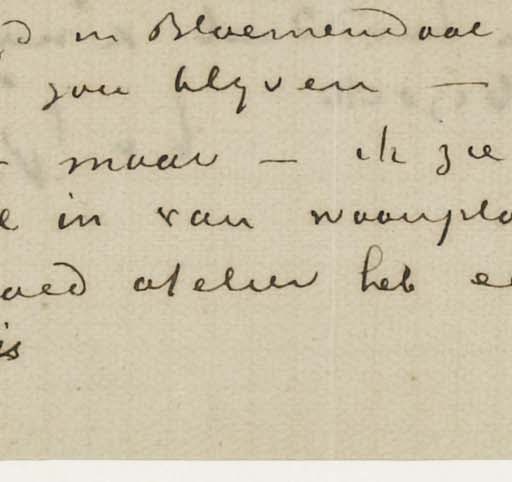 in Bloemendaal
zou blyven —
— maar — ik zie
in van woonpla
oed atelier heb
is